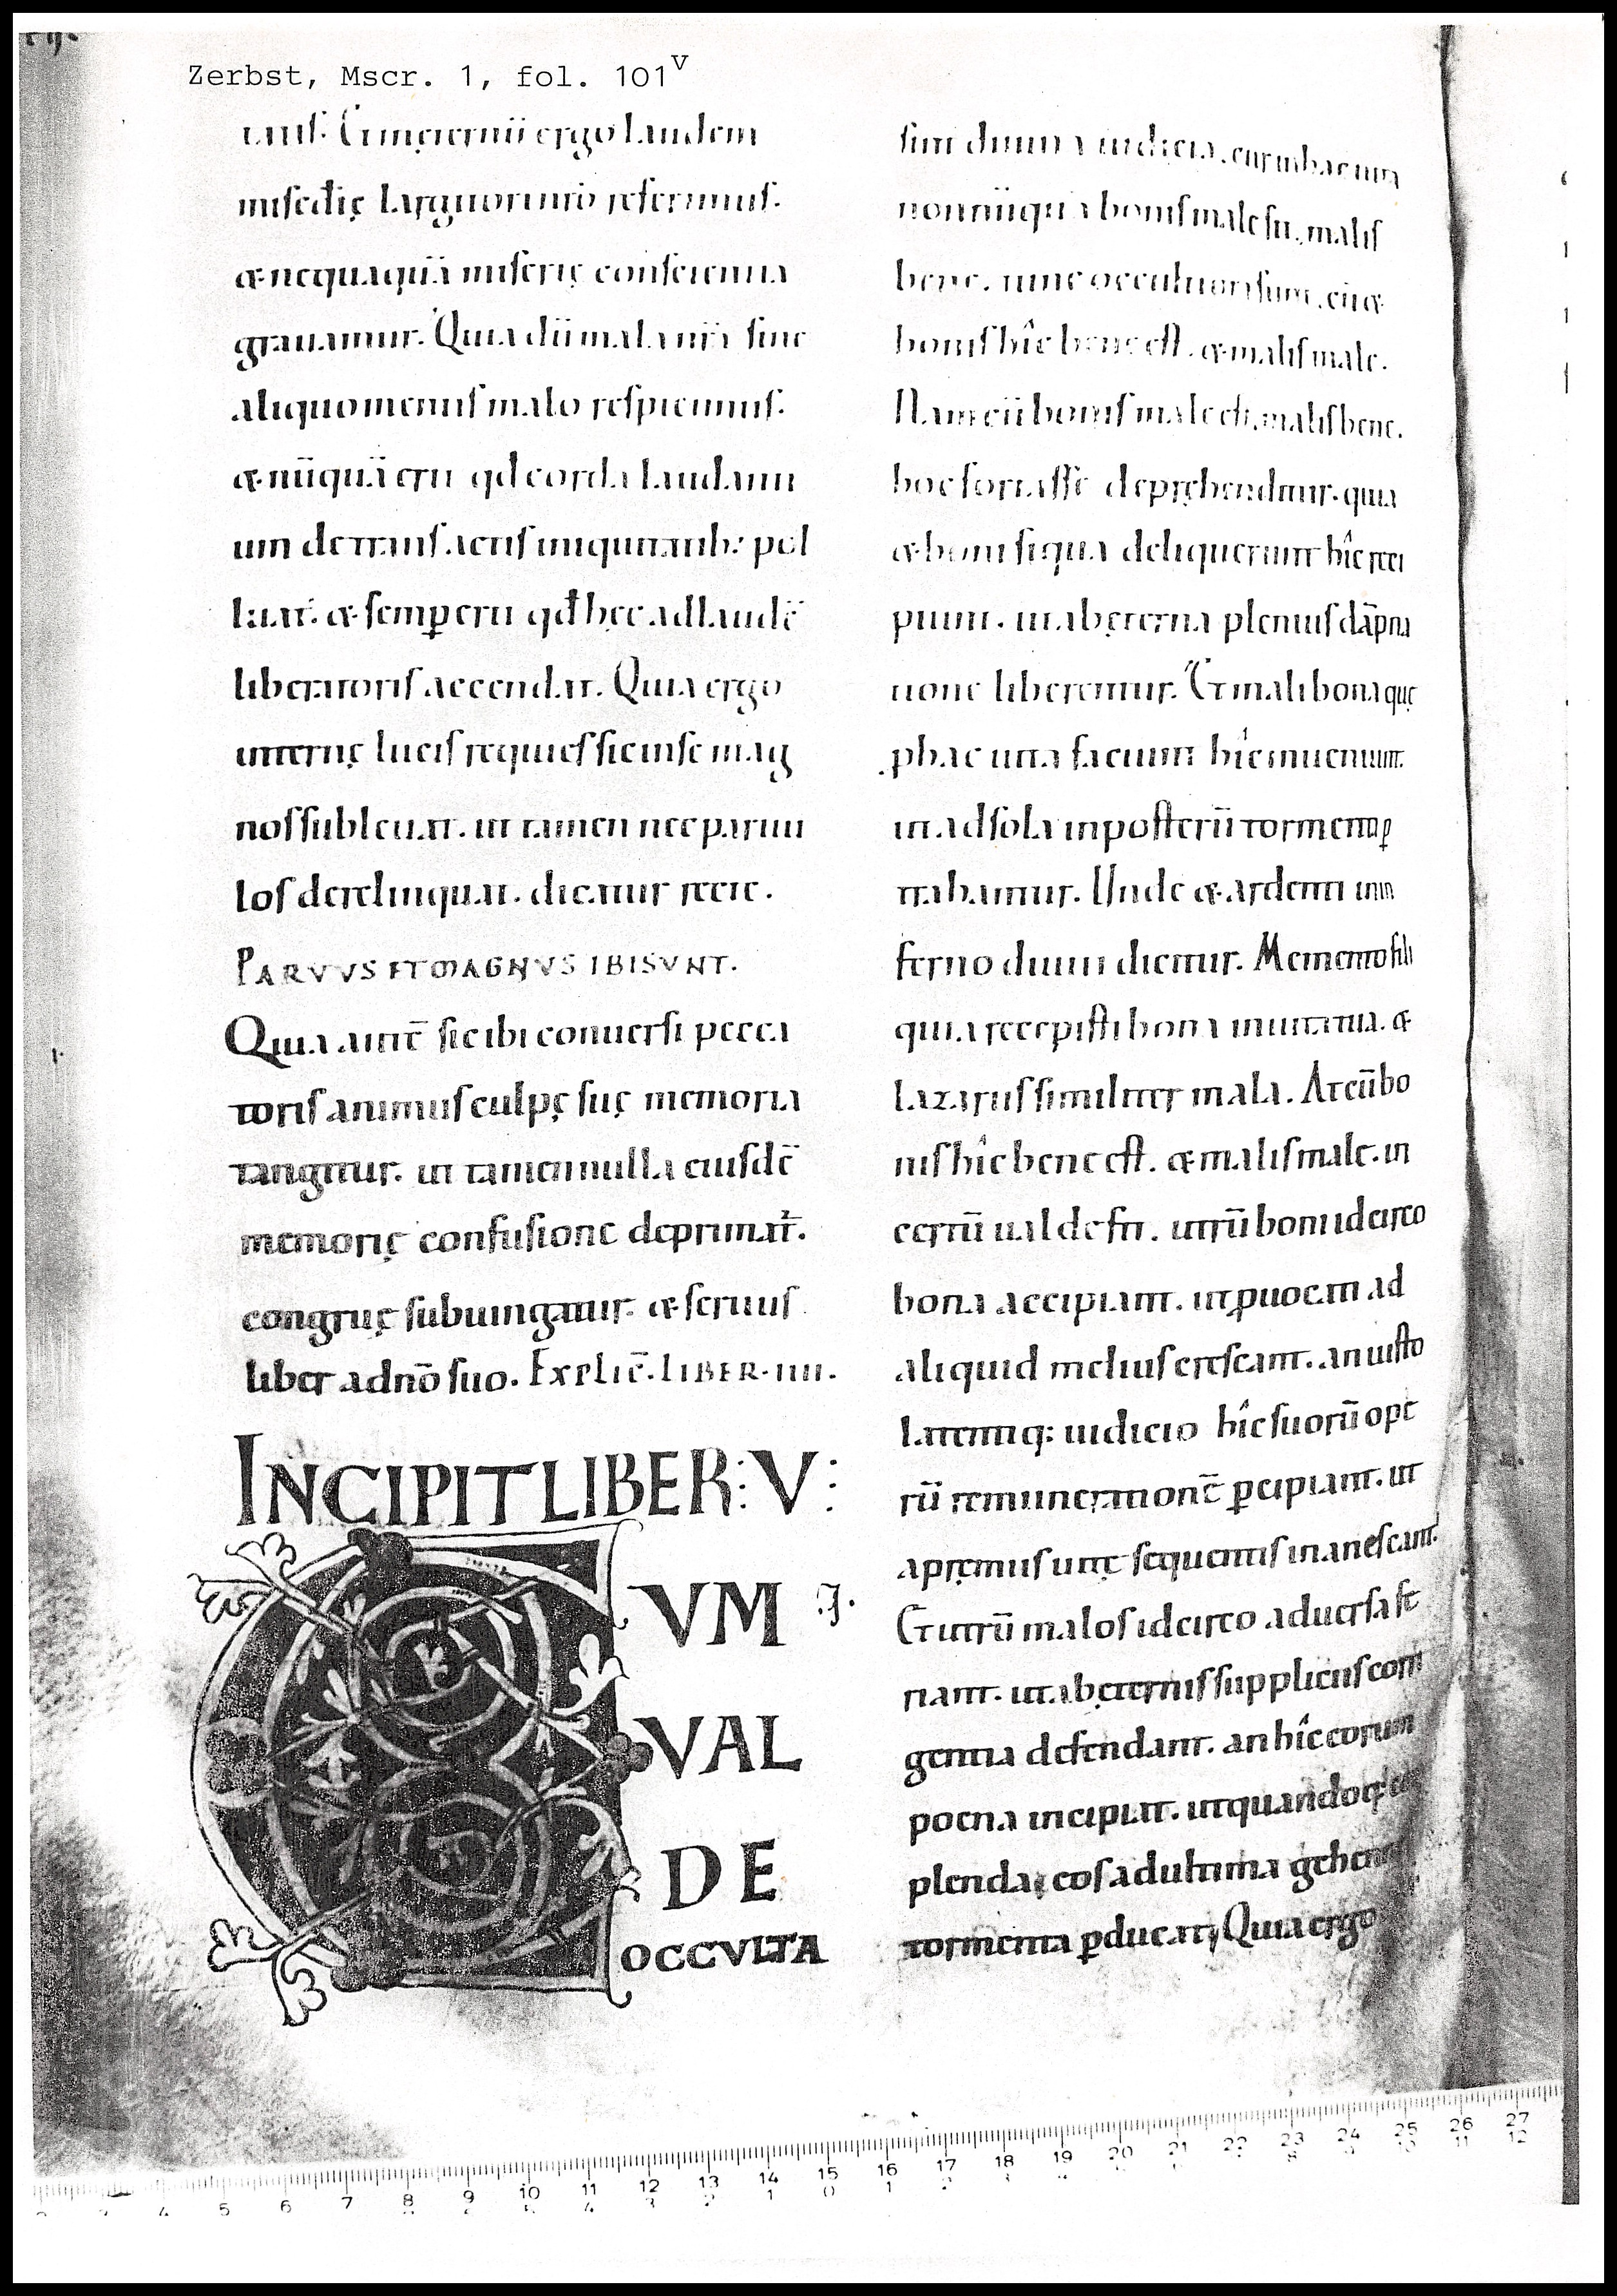 Zerbst, Mscr. 1, fol. 101v
uius. Et in ęternū ergo laudem
misc̄dię largitori nr̄o referimus.
& nequaquā miserię conscientia
grauamur. Quia dū mala nr̄a sine
aliquo mentis malo respicimus.
& nūquā erit qd corda laudanti
um de transactis iniquitatib: pol
luat. & semꝑ erit qđ hęc ad laudē
liberatoris accendat. Quia ergo
internę lucis requies sic in se mag
nos subleuat. ut tamen nec paruu
los derelinquat. dicatur recte.
PARVVS ET MAGNVS IBI SVNT.
Quia aut̄ sic ibi conuersi pecca
toris animus culpę suę memoria
tangitur. ut tamen nulla eiusdē
memorię confusione deprimat̄.
congruę subiungatur. & seruus
liber a dn̄o suo. Explic̄. LIBER. IIII.
INCIPIT LIBER: V:
CVM .I.
VAL
DE
OCCVLTA
sint diuina iudicia. cur in hac uita
nonnūquā bonis male sit. malis
bene. tunc occultiora sunt. cū &
bonis hîc bene est. & malis male.
Nam cū bonis male est. malis bene.
hoc fortasse depręhenditur. quia
& boni siqua deliquerunt hîc reci
piunt. ut ab ęterna plenius dāpna
tione liberentur. Et mali bona quę
p hac uita faciunt hîc inueniunt.
ut ad sola in posterū tormenta ꝑ
trahantur. Unde & ardenti in in
ferno diuiti dicitur. Memento fili
quia recepisti bona in uita tua. &
lazarus similiter mala. At cū bo
nis hîc bene est. & malis male. in
certū ualde fit. utrū boni idcirco
bona accipiant. ut puocati ad
aliquid melius crescant. an iusto
latentiq: iudicio hîc suorū ope
rū remunerationē ꝑcipiant. ut
a pręmiis uitę sequentis inanescant.
Et utrū malos idcirco aduersa fe
riant. ut ab ęternis suppliciis corri
gentia defendant. an hîc eorum
poena incipiat. ut quandoq:
plenda: eos ad ultima gehennę
tormenta ꝑducat; Quia ergo
5 6 7 8 9 10 11 12 13 14 15 16 17 18 19 20 21 22 23 24 25 26 27